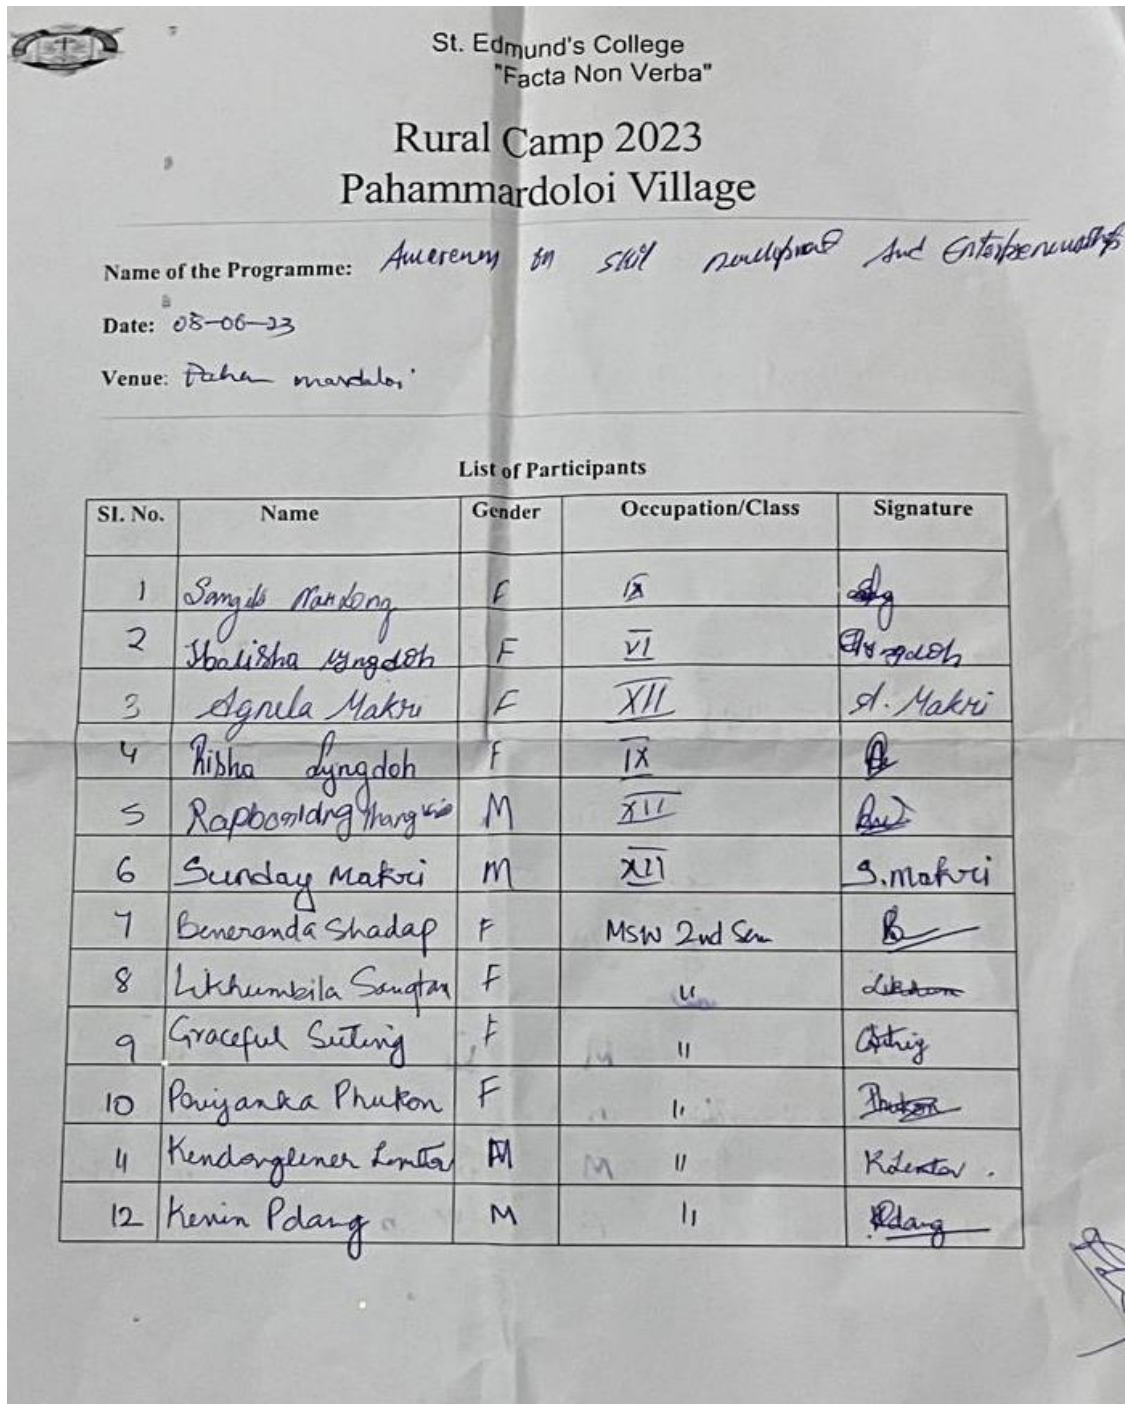 St. Edmund's College
"Facta Non Verba"
Rural Camp 2023
Pahammardoloi Village
Name of the Programme: Awareness on skill Development And Enterpreneurship
Date: 08-06-23
Venue: Paham mardoloi
List of Participants
SI. No. Name Gender Occupation/Class Signature
1 F IX
2 Ibalisha Lyngdoh F VI Lyngdoh
3 Agnela Makri F XII A. Makri
4 Risha Lyngdoh F IX
5 M XII
6 Sunday Makri M XII S. Makri
7 Beneranda Shadap F MSW 2nd Sem
8 Likhumbila Sangtam F "
9 Graceful Suting F "
10 Pouyanka Phukon F " Phukon
11 M "
12 Kevin Pdang M " Pdang